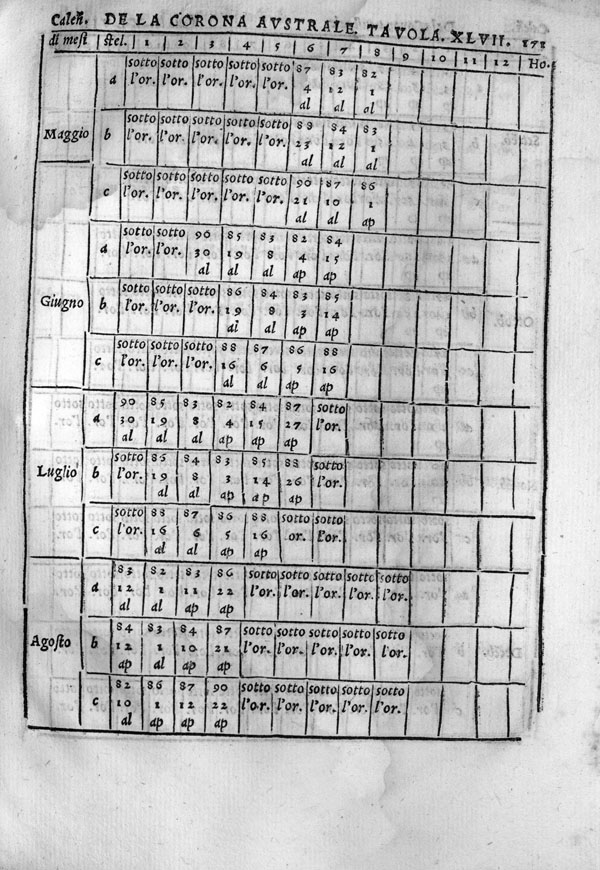 Caleñ. DE LA CORONA AVSTRALE. TAVOLA. XLVII. 171
di mesi stel. 1 2 3 4 5 6 7 8 9 10 11 12 Ho.
sotto sotto sotto sotto sotto 87 83 82
a l'or. l'or. l'or. l'or. l'or. 4 12 1
al al al
sotto sotto sotto sotto sotto 88 84 83
Maggio b l'or. l'or. l'or. l'or. l'or. 23 12 1
al al al
sotto sotto sotto sotto sotto 90 87 86
c l'or. l'or. l'or. l'or. l'or. 21 10 1
al al ap
sotto sotto 90 85 83 82 84
a l'or. l'or. 30 19 8 4 15
al al al ap ap
sotto sotto sotto 86 84 83 85
Giugno b l'or. l'or. l'or. 19 8 3 14
al al ap ap
sotto sotto sotto 88 87 86 88
c l'or. l'or. l'or. 16 6 5 16
al al ap ap
90 85 83 82 84 87 sotto
a 30 19 8 4 15 27 l'or.
al al al ap ap ap
sotto 86 84 83 85 88 sotto
Luglio b l'or. 19 8 3 14 26 l'or.
al al ap ap ap
sotto 88 87 86 88 sotto sotto
c l'or. 16 6 5 16 or. l'or.
al al ap ap
83 82 83 86 sotto sotto sotto sotto sotto
a 12 1 11 22 l'or. l'or. l'or. l'or. l'or.
al al ap ap
84 83 84 87 sotto sotto sotto sotto sotto
Agosto b 12 1 10 21 l'or. l'or. l'or. l'or. l'or.
ap al ap ap
82 86 87 90 sotto sotto sotto sotto sotto
c 10 1 12 22 l'or. l'or. l'or. l'or. l'or.
al ap ap ap